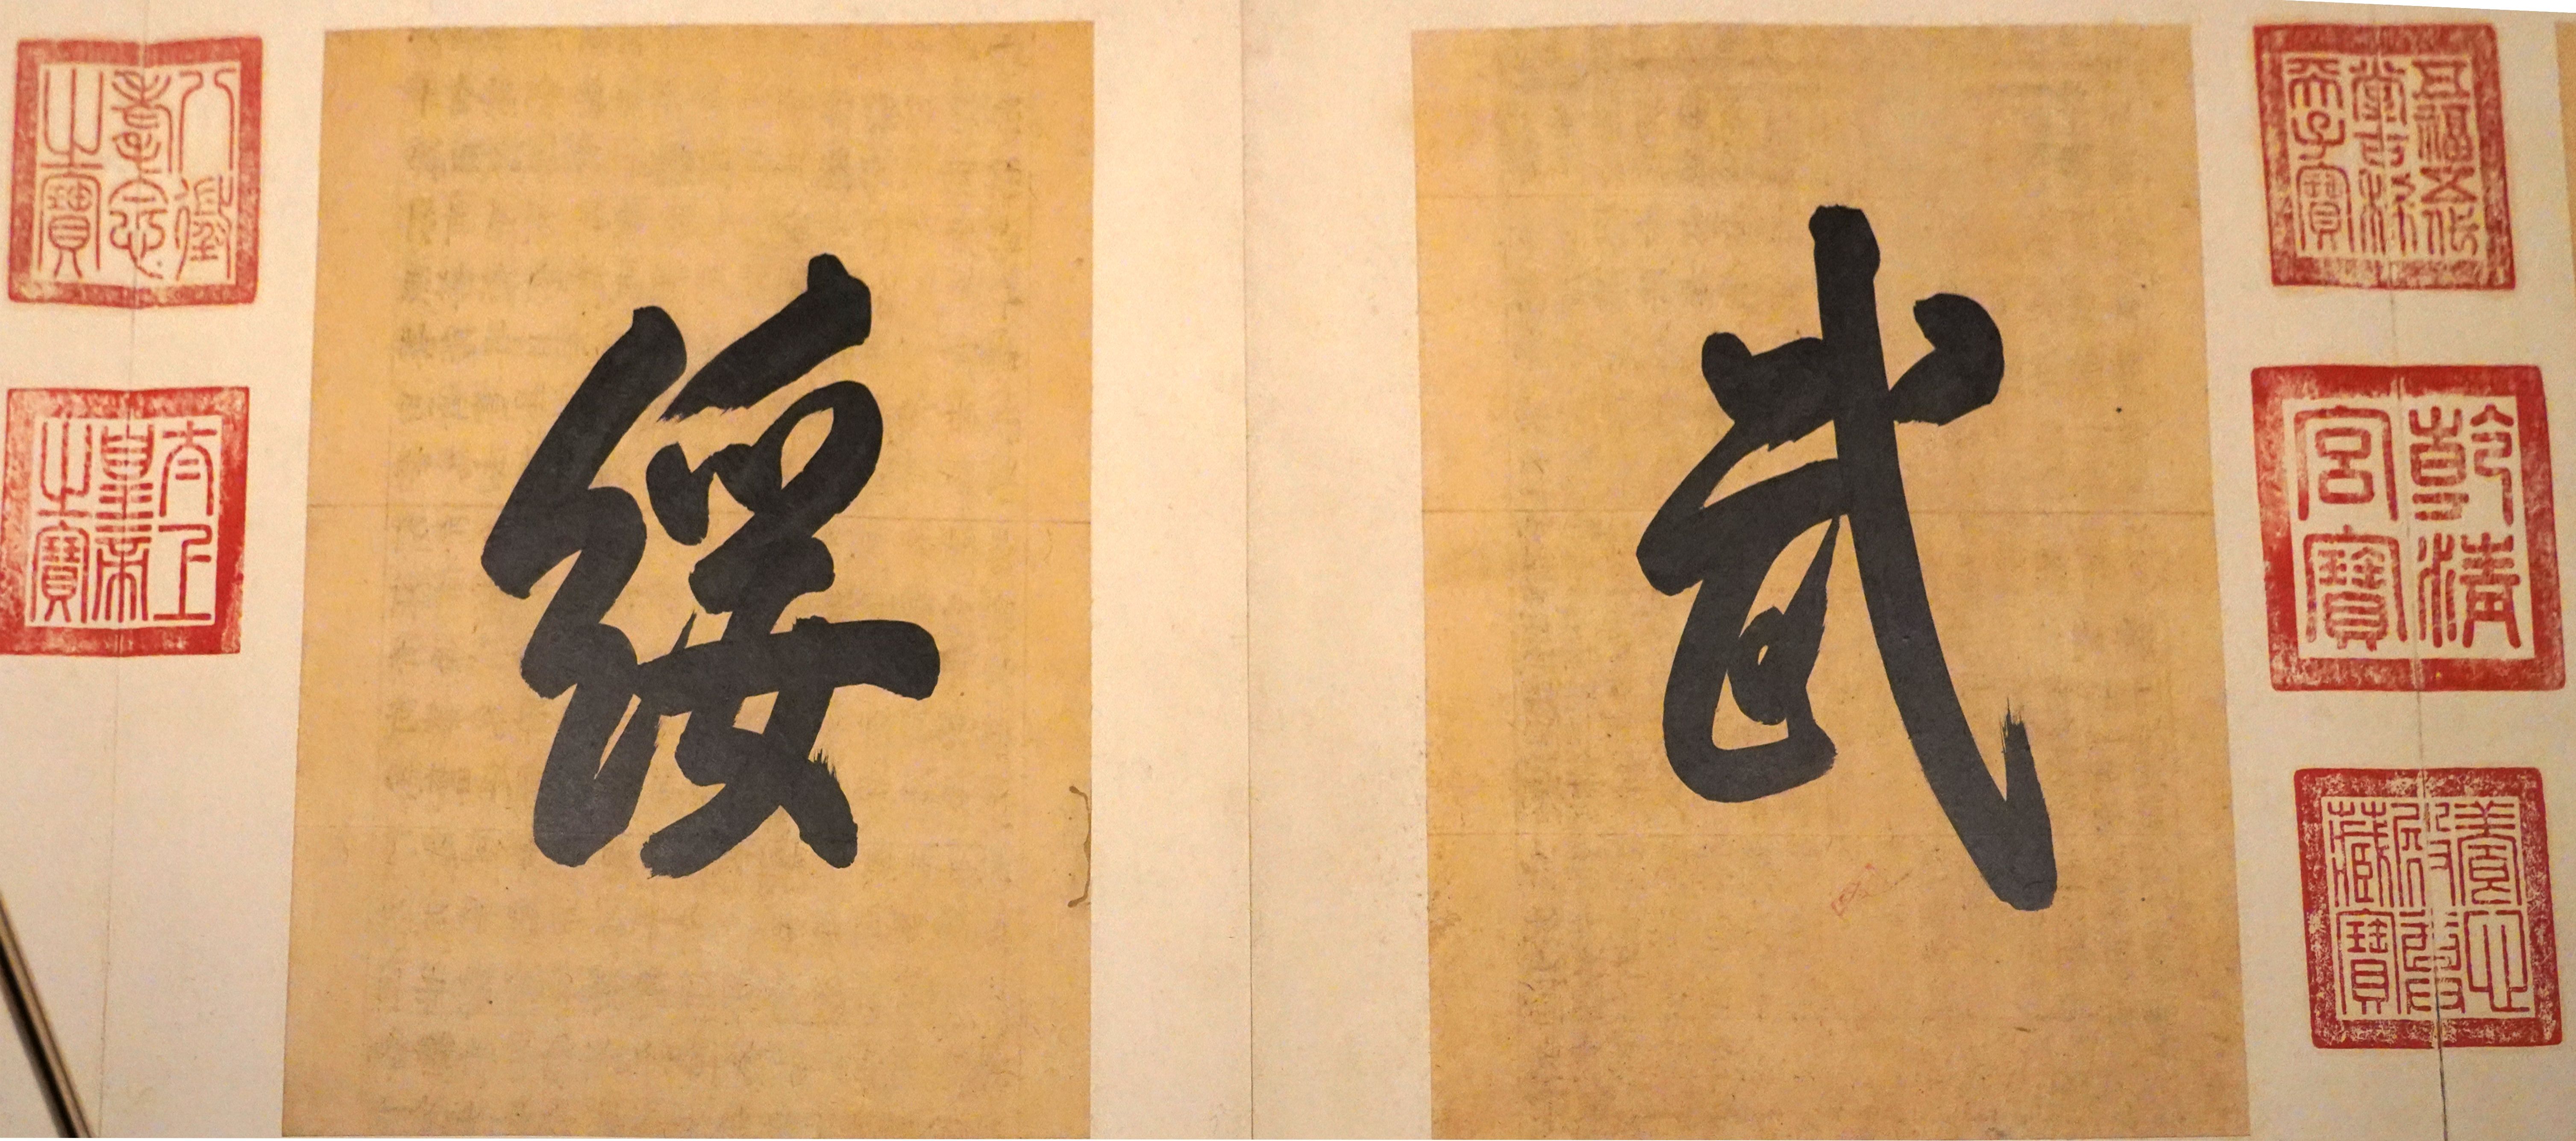 五福五代
堂古稀
天子寶
乾清
宮寶
養心
殿尊
藏寶
武
綏
八徵
耄念
之寶
太上
皇帝
之寶